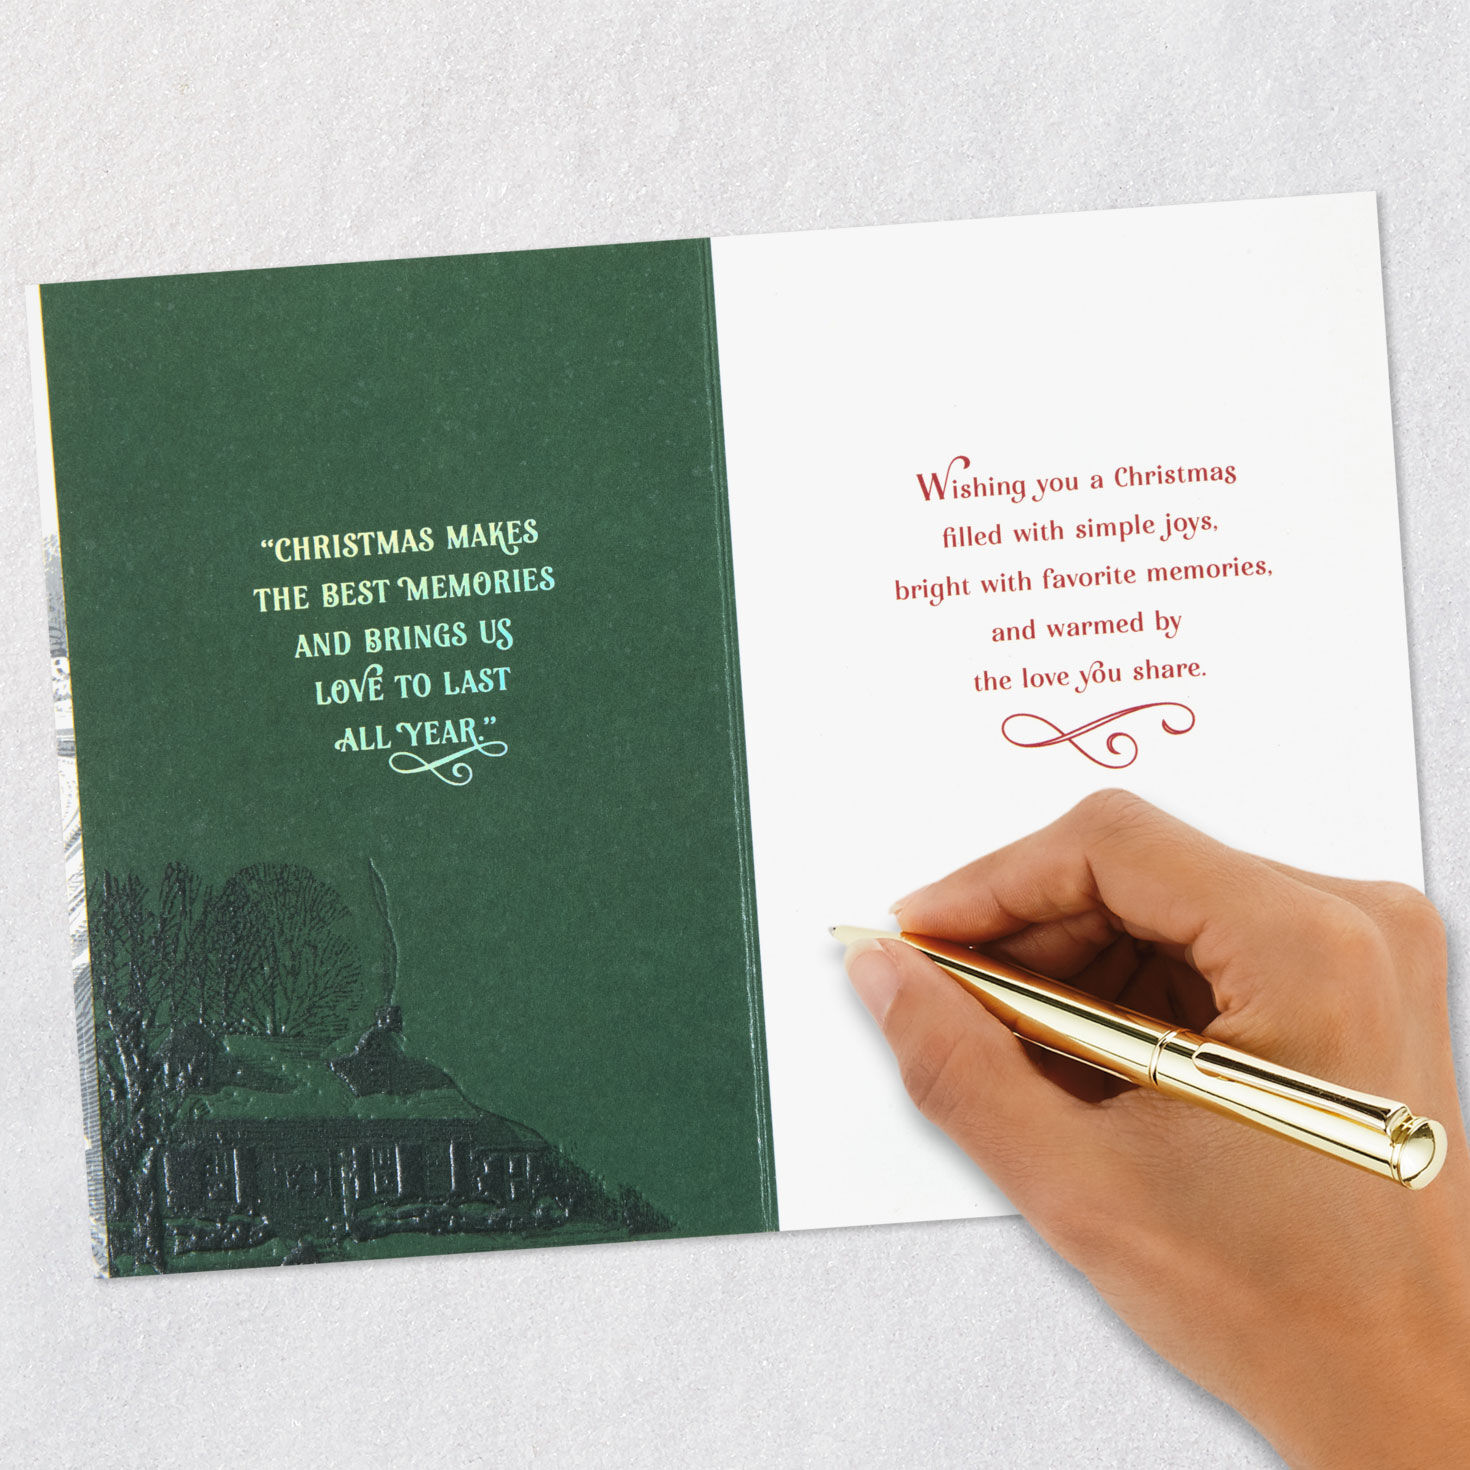 “CHRISTMAS MAKES
THE BEST MEMORIES
AND BRINGS US
LOVE TO LAST
ALL YEAR.”
Wishing you a Christmas
filled with simple joys,
bright with favorite memories,
and warmed by
the love you share.